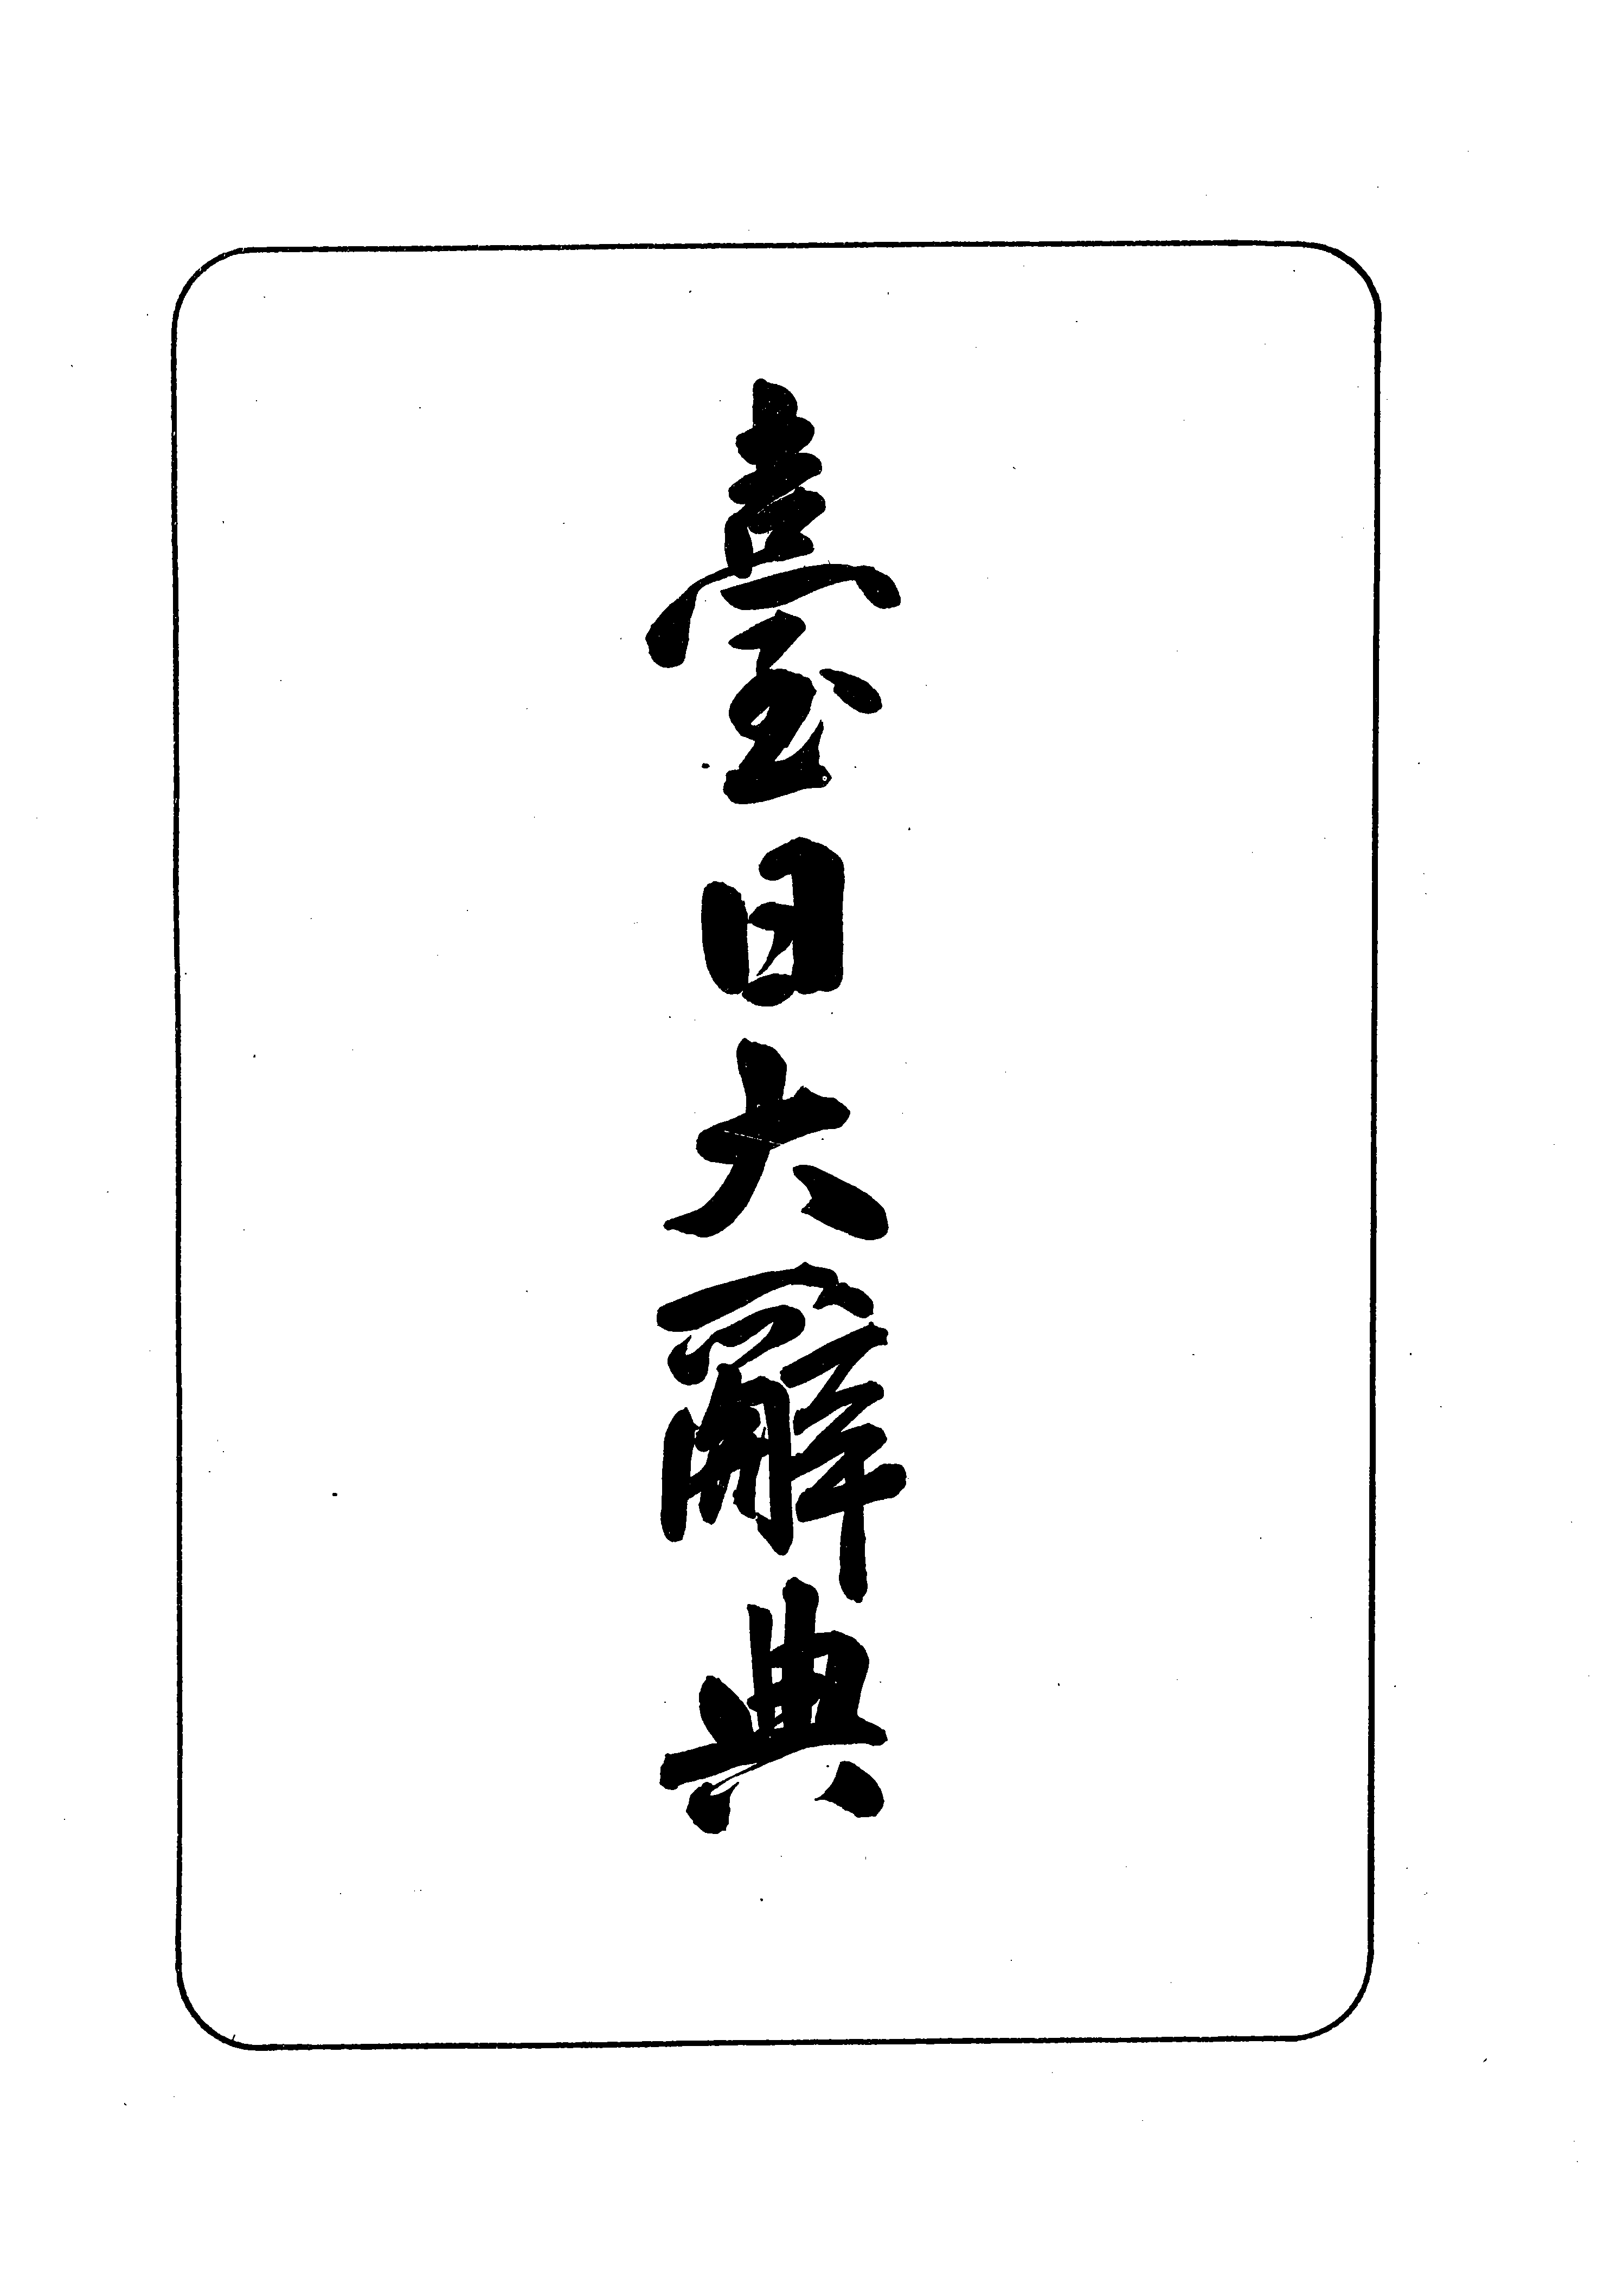 臺日大辭典